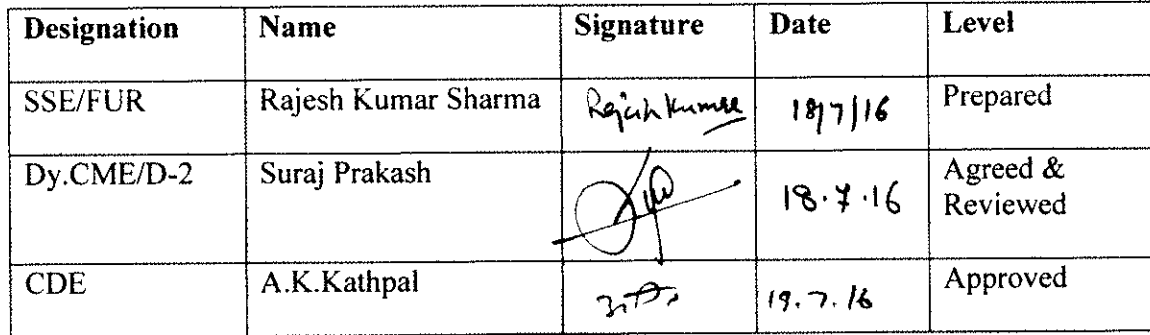 Designation Name Signature Date Level
SSE/FUR Rajesh Kumar Sharma Rajesh Kumar 18/7/16 Prepared
Dy.CME/D-2 Suraj Prakash 18.7.16 Agreed &
Reviewed
CDE A.K.Kathpal 19.7.16 Approved